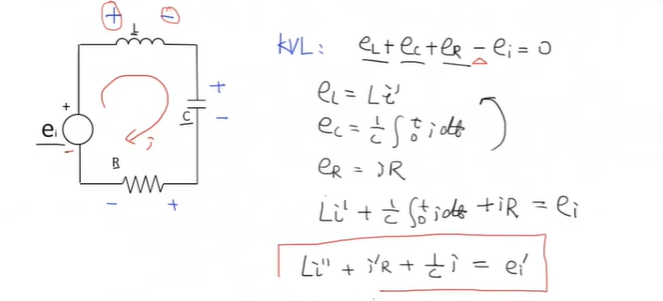 + −
L
KVL: e_L + e_C + e_R − e_i = 0
+
e_L = Li'
+
C
−
e_i
e_C = 1/C ∫₀ᵗ i dt
−
i
R
e_R = iR
− +
Li' + 1/C ∫₀ᵗ i dt + iR = e_i
Li'' + i'R + 1/C i = e_i'